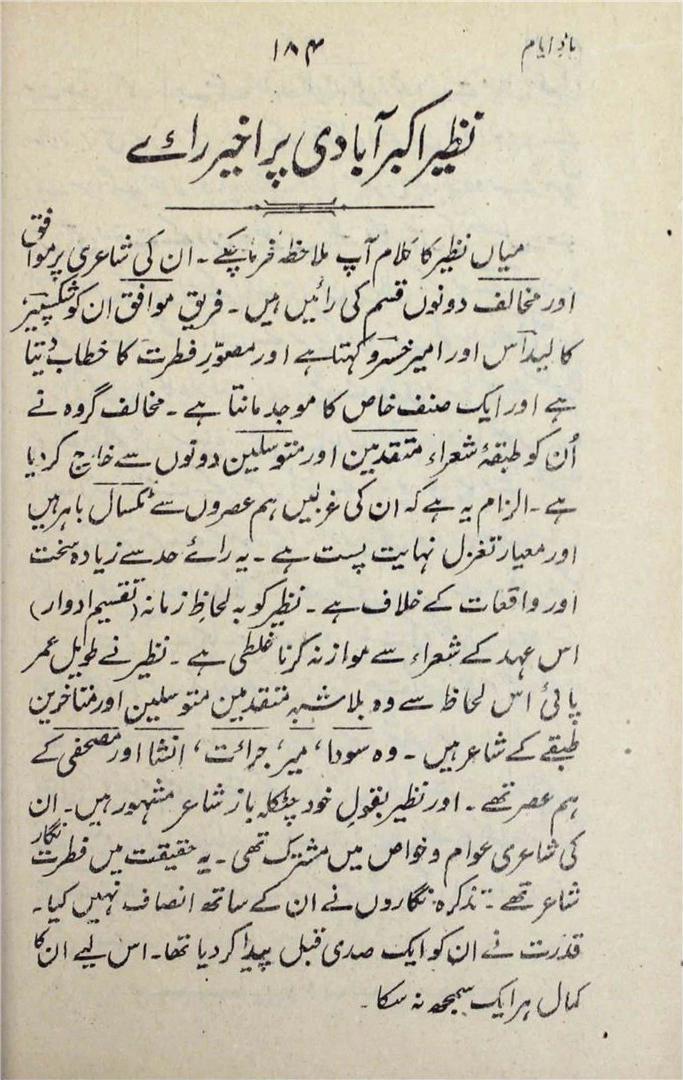 یادِ ایام
۱۸۴
نظیر اکبر آبادی پر اخیر رائے
میاں نظیر کا کلام آپ ملاحظہ فرما چکے ۔ ان کی شاعری پر موافق
اور مخالف دونوں قسم کی رائیں ہیں ۔ فریق موافق ان کو شکسپیئر
کالیداس اور امیر خسرو کہتا ہے اور مصوّرِ فطرت کا خطاب دیتا
ہے اور ایک صنف خاص کا موجد مانتا ہے ۔ مخالف گروہ نے
اُن کو طبقۂ شعراء متقدمین اور متوسلین دونوں سے خارج کر دیا
ہے ۔ الزام یہ ہے کہ ان کی غزلیں ہم عصروں سے ٹکسال باہر ہیں
اور معیار تغزل نہایت پست ہے ۔ یہ رائے حد سے زیادہ سخت
اور واقعات کے خلاف ہے ۔ نظیر کو بہ لحاظِ زمانہ (تقسیم ادوار)
اس عہد کے شعراء سے موازنہ کرنا غلطی ہے ۔ نظیر نے طویل عمر
پائی اس لحاظ سے وہ بلا شبہ متقدمین متوسلین اور متاخرین
طبقے کے شاعر ہیں ۔ وہ سودا، میر، جرائت، انشا اور مصحفی کے
ہم عصر تھے ۔ اور نظیر بقولِ خود چٹکلہ باز شاعر مشہور ہیں ۔ ان
کی شاعری عوام و خواص میں مشترک تھی ۔ یہ حقیقت میں فطرت نگار
شاعر تھے ۔ تذکرہ نگاروں نے ان کے ساتھ انصاف نہیں کیا ۔
قدرت نے ان کو ایک صدی قبل پیدا کر دیا تھا ۔ اس لیے ان کا
کمال ہر ایک سمجھ نہ سکا ۔